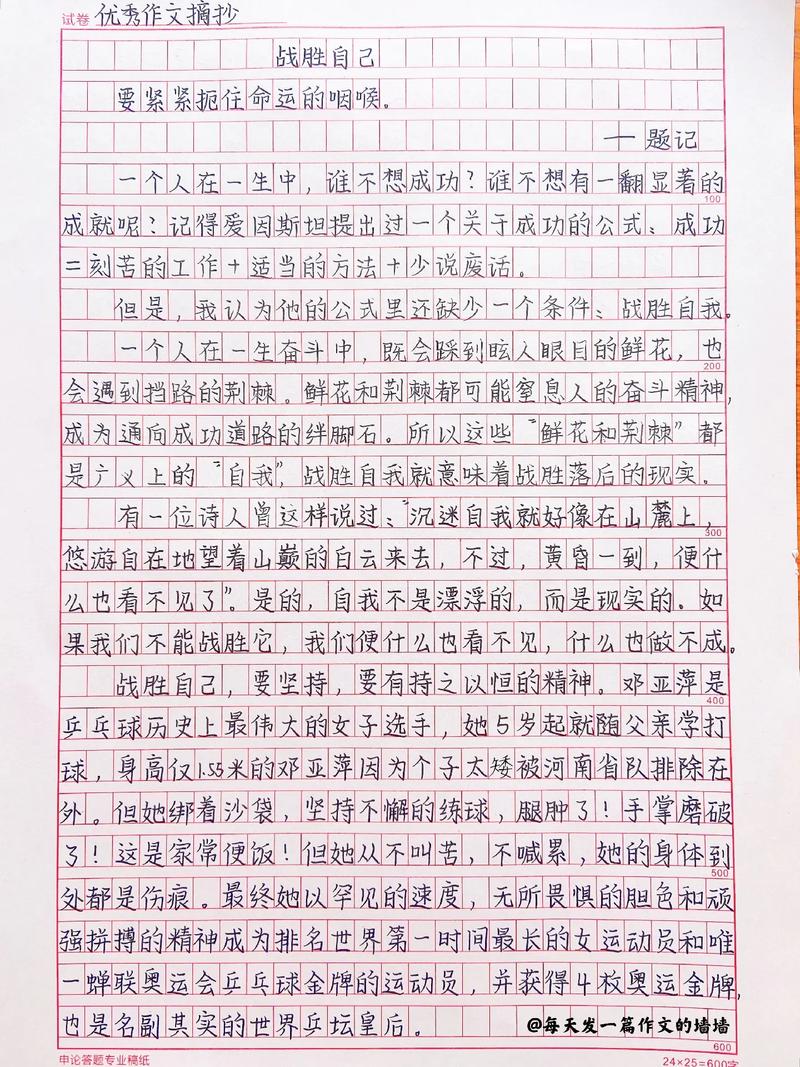 试卷 优秀作文摘抄
战胜自己
要紧紧扼住命运的咽喉。
——题记
一个人在一生中，谁不想成功？谁不想有一翻显著的
100
成就呢？记得爱因斯坦提出过一个关于成功的公式：成功
=刻苦的工作+适当的方法+少说废话。
但是，我认为他的公式里还缺少一个条件：战胜自我。
一个人在一生奋斗中，既会踩到眩人眼目的鲜花，也
200
会遇到挡路的荆棘。鲜花和荆棘都可能窒息人的奋斗精神，
成为通向成功道路的绊脚石。所以这些“鲜花和荆棘”都
是广义上的“自我”，战胜自我就意味着战胜落后的现实。
有一位诗人曾这样说过：“沉迷自我就好像在山麓上，
300
悠游自在地望着山巅的白云来去，不过，黄昏一到，便什
么也看不见了”。是的，自我不是漂浮的，而是现实的。如
果我们不能战胜它，我们便什么也看不见，什么也做不成。
战胜自己，要坚持，要有持之以恒的精神。邓亚萍是
400
乒乓球历史上最伟大的女子选手，她5岁起就随父亲学打
球，身高仅1.55米的邓亚萍因为个子太矮被河南省队排除在
外。但她绑着沙袋，坚持不懈的练球，腿肿了！手掌磨破
了！这是家常便饭！但她从不叫苦，不喊累，她的身体到
500
处都是伤痕。最终她以罕见的速度，无所畏惧的胆色和顽
强拼搏的精神成为排名世界第一时间最长的女运动员和唯
一蝉联奥运会乒乓球金牌的运动员，并获得4枚奥运金牌，
也是名副其实的世界乒坛皇后。
@每天发一篇作文的墙墙
600
申论答题专业稿纸
24×25=600字